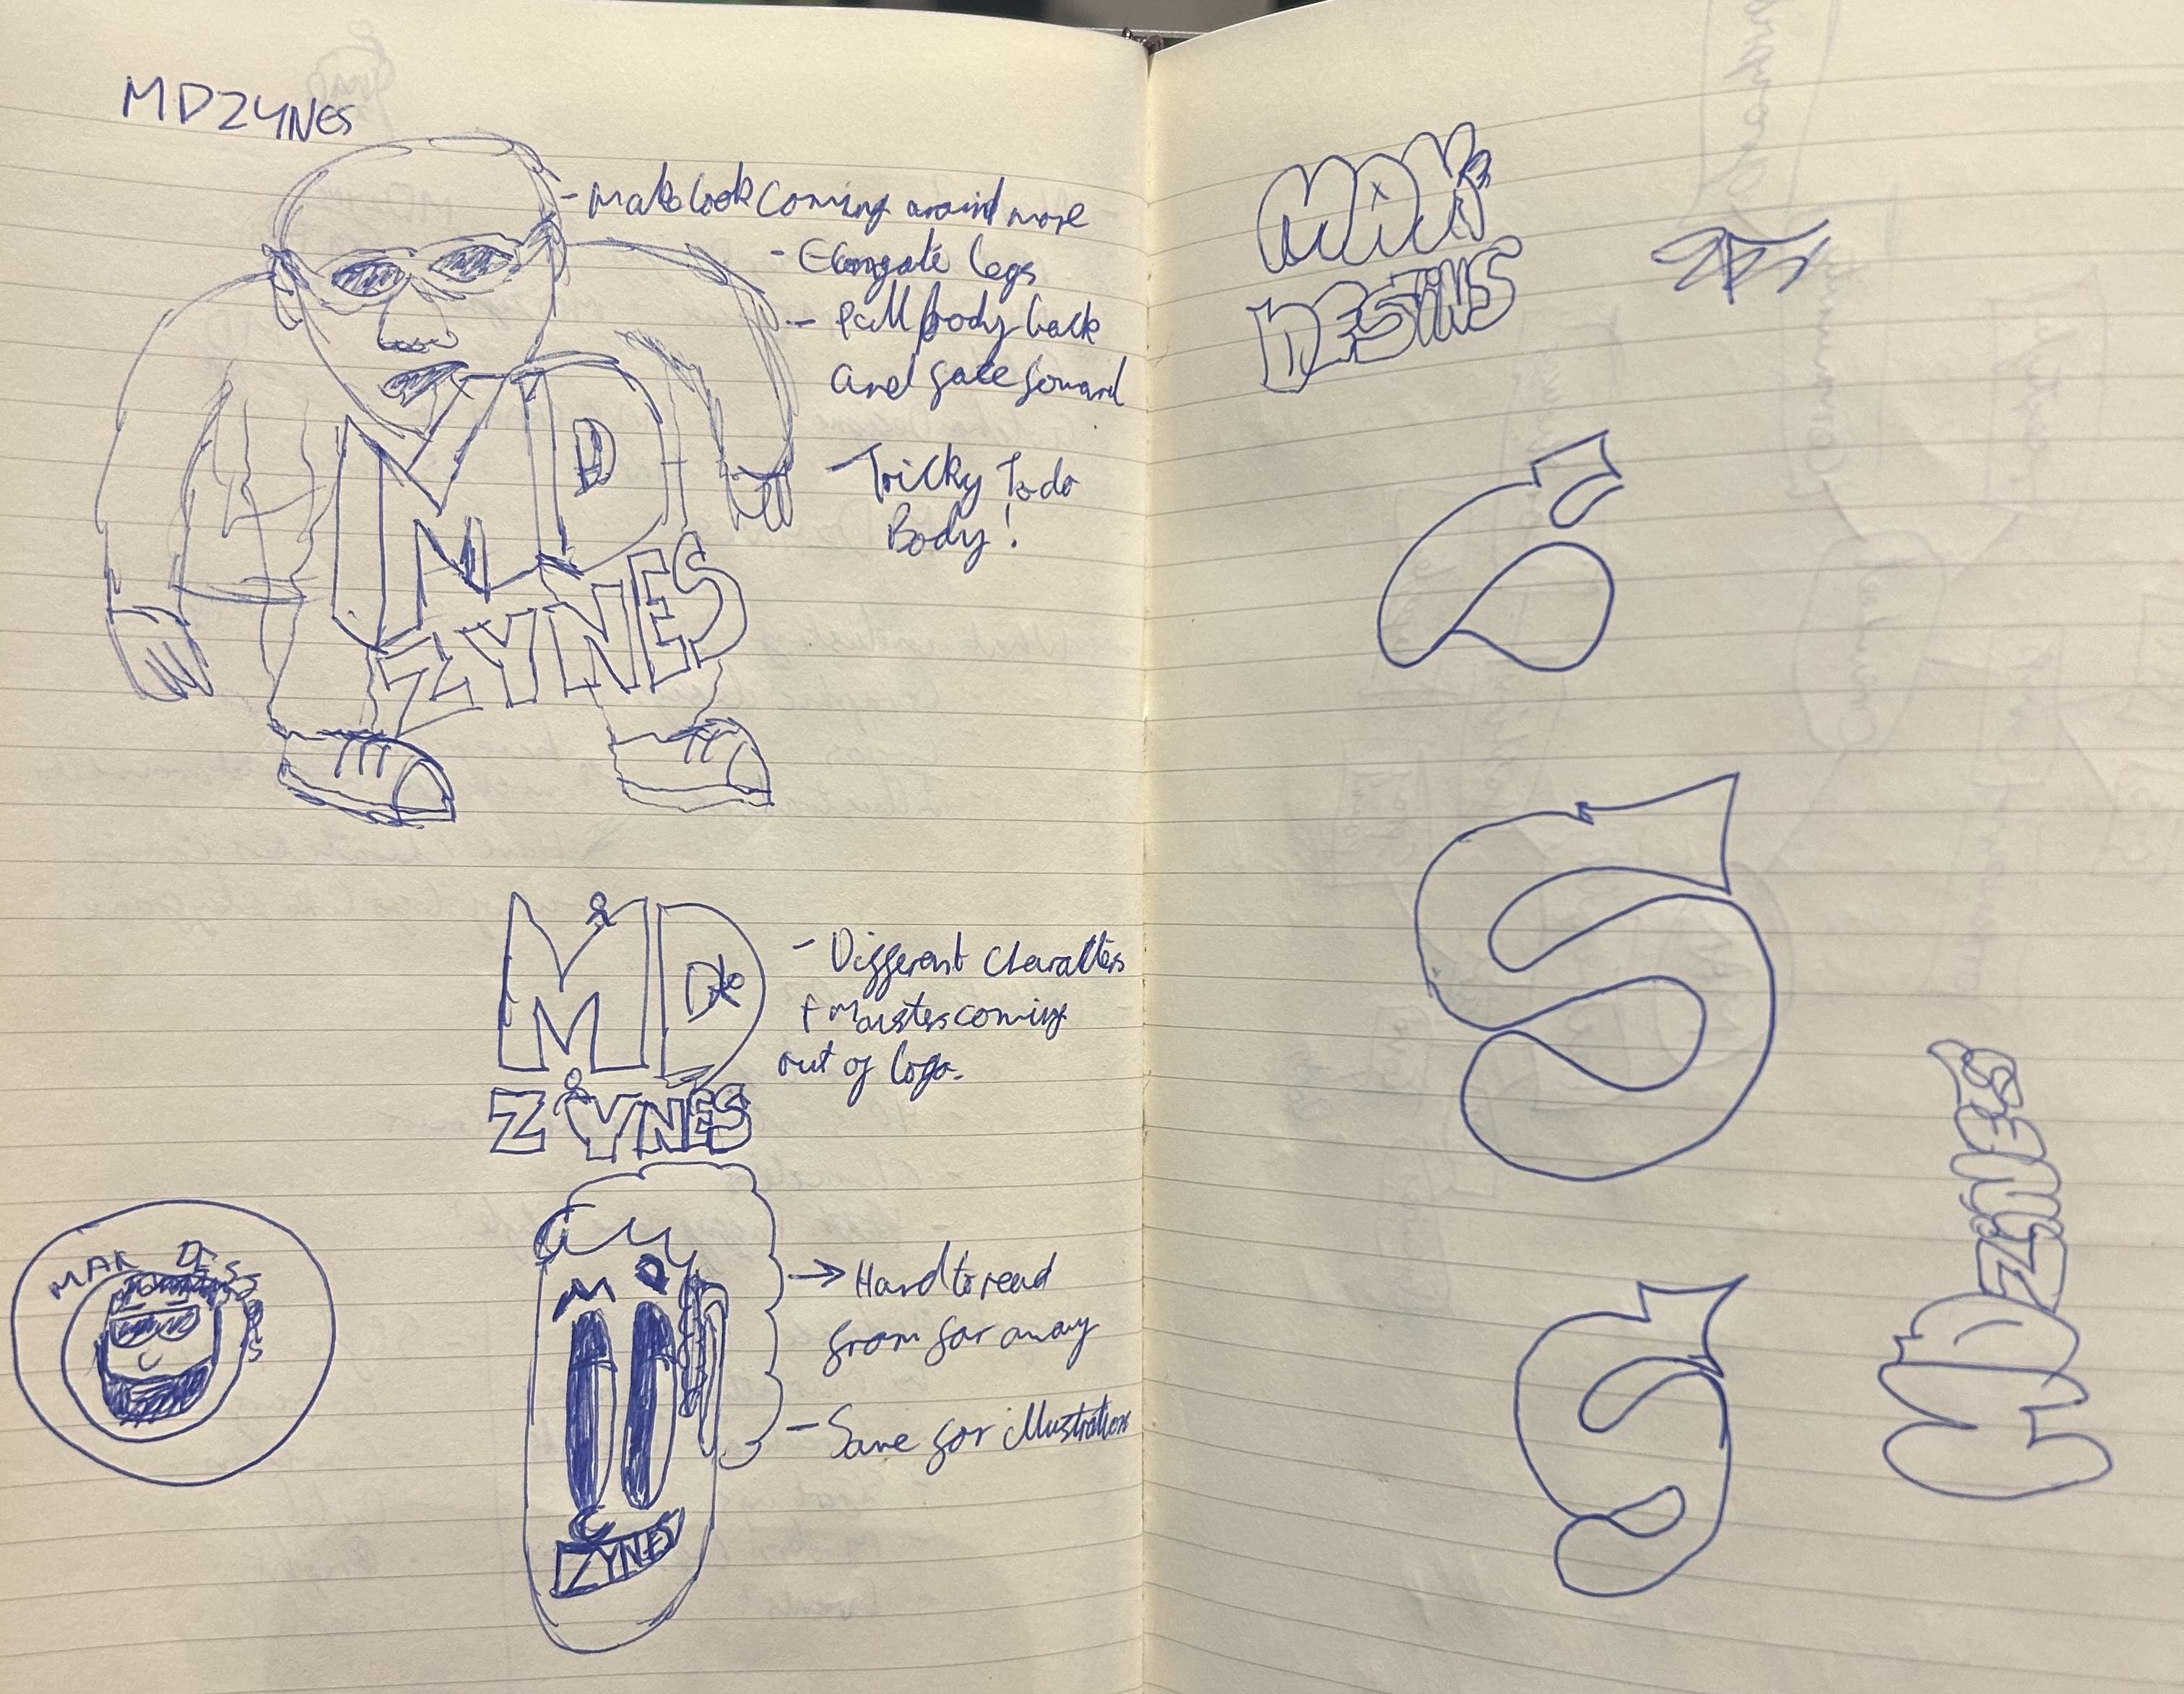 MDZYNES
- Make look Coming around more
- Elongate legs
- Pull body back
and face forward
- Tricky To do
Body!
MD
D
ZYNES
MD
D
ZYNES
- Different Characters
+ Monsters coming
out of logo.
MAR DES
M D
ZYNES
→ Hard to read
from far away
- Save for illustration
MAX
DESINS
S
S
S
MD
ZYNES